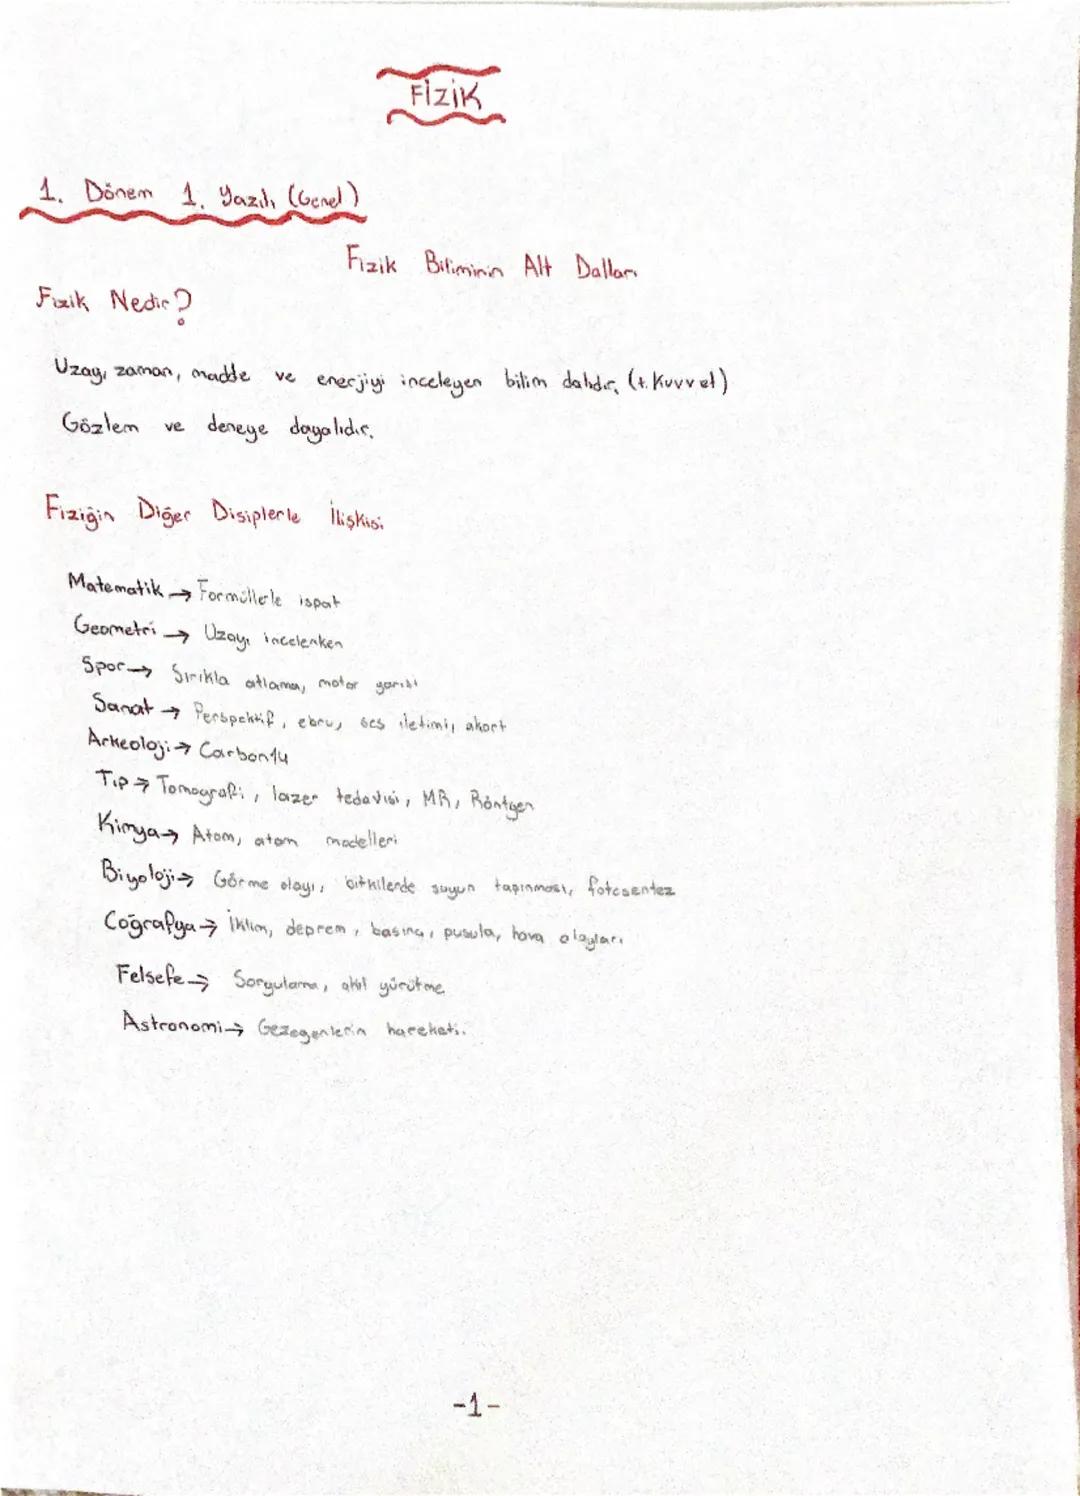 FİZİK
1. Dönem 1. Yazılı (Genel)
Fizik Biliminin Alt Dalları
Fizik Nedir?
Uzayı, zaman, madde ve enerjiyi inceleyen bilim dalıdır. (+ Kuvvet)
Gözlem ve deneye dayalıdır.
Fiziğin Diğer Disiplerle İlişkisi
Matematik → Formüllerle ispat
Geometri → Uzayı incelerken
Spor → Sırıkla atlama, motor yarışı
Sanat → Perspektif, ebru, ses iletimi, akort
Arkeoloji → Carbon14
Tıp → Tomografi, lazer tedavisi, MR, Röntgen
Kimya → Atom, atom modelleri
Biyoloji → Görme olayı, bitkilerde suyun taşınması, fotosentez
Coğrafya → İklim, deprem, basınç, pusula, hava olayları
Felsefe → Sorgulama, akıl yürütme
Astronomi → Gezegenlerin hareketi.
-1-